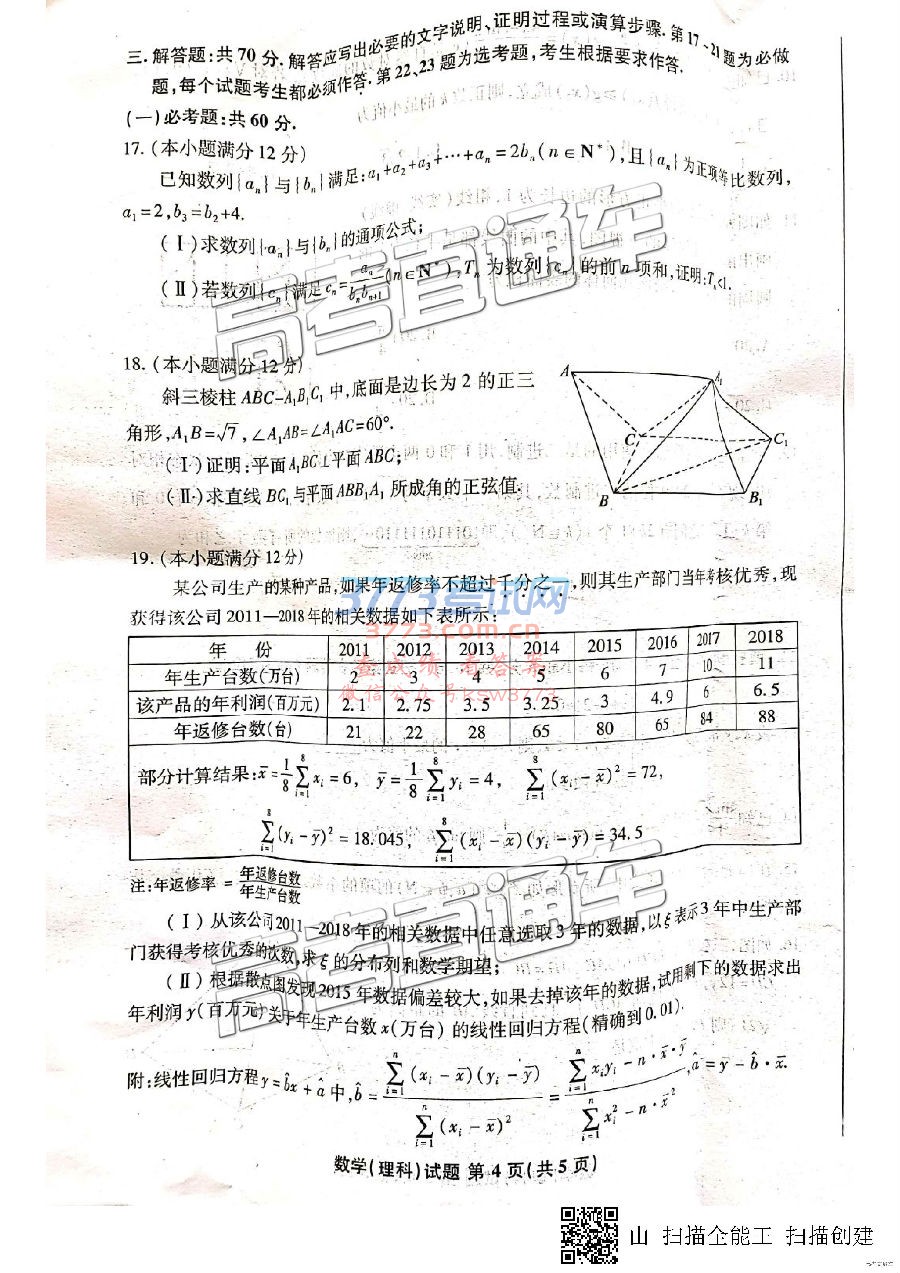 三.解答题:共70分.解答应写出必要的文字说明、证明过程或演算步骤.第17~21题为必做
题,每个试题考生都必须作答.第22、23题为选考题,考生根据要求作答.
(一)必考题:共60分.
17.(本小题满分12分)
已知数列{aₙ}与{bₙ}满足:a₁+a₂+a₃+⋯+aₙ=2bₙ(n∈N*),且{aₙ}为正项等比数列,
a₁=2,b₃=b₂+4.
(Ⅰ)求数列{aₙ}与{bₙ}的通项公式;
(Ⅱ)若数列{cₙ}满足cₙ=aₙ/(bₙbₙ₊₁)(n∈N*),Tₙ为数列{cₙ}的前n项和,证明:Tₙ<1.
18.(本小题满分12分)
斜三棱柱ABC-A₁B₁C₁中,底面是边长为2的正三
角形,A₁B=√7,∠A₁AB=∠A₁AC=60°.
(Ⅰ)证明:平面A₁BC⊥平面ABC;
(Ⅱ)求直线BC₁与平面ABB₁A₁所成角的正弦值.
A A₁
C C₁
B B₁
19.(本小题满分12分)
某公司生产的某种产品,如果年返修率不超过千分之一,则其生产部门当年考核优秀,现
获得该公司2011—2018年的相关数据如下表所示:
年 份 2011 2012 2013 2014 2015 2016 2017 2018
年生产台数(万台) 2 3 4 5 6 7 10 11
该产品的年利润(百万元) 2.1 2.75 3.5 3.25 3 4.9 6 6.5
年返修台数(台) 21 22 28 65 80 65 84 88
部分计算结果:x̄=1/8 ∑(i=1→8) xᵢ=6, ȳ=1/8 ∑(i=1→8) yᵢ=4, ∑(i=1→8) (xᵢ-x̄)²=72,
∑(i=1→8) (yᵢ-ȳ)²=18.045, ∑(i=1→8) (xᵢ-x̄)(yᵢ-ȳ)=34.5
注:年返修率=年返修台数/年生产台数
(Ⅰ)从该公司2011—2018年的相关数据中任意选取3年的数据,以ξ表示3年中生产部
门获得考核优秀的次数,求ξ的分布列和数学期望;
(Ⅱ)根据散点图发现2015年数据偏差较大,如果去掉该年的数据,试用剩下的数据求出
年利润y(百万元)关于年生产台数x(万台)的线性回归方程(精确到0.01).
附:线性回归方程y=b̂x+â中,b̂=∑(i=1→n) (xᵢ-x̄)(yᵢ-ȳ)/∑(i=1→n) (xᵢ-x̄)²=∑(i=1→n) xᵢyᵢ-n·x̄·ȳ/∑(i=1→n) xᵢ²-n·x̄²,â=ȳ-b̂·x̄.
数学(理科)试题 第4页(共5页)
高考直通车
3773考试网
3773.com.cn
查成绩 看答案
微信公众号ksw3773
高考直通车
山 扫描全能工 扫描创建